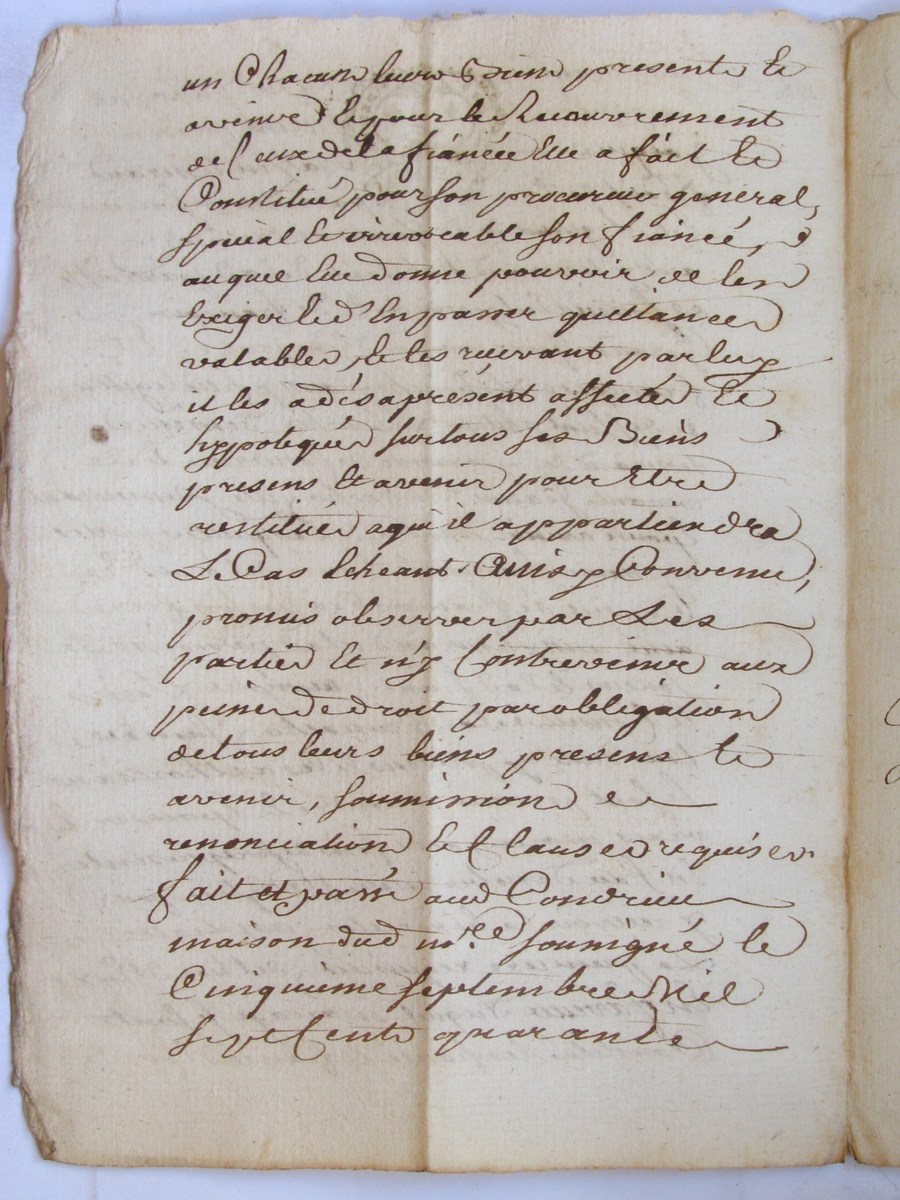 un Chacun leurs Biens presents Et
avenir Et pour le Recouvrement
de Ceux de la fiancée Elle a fait Et
Constitué pour son procureur general,
spécial Et irrevocable son fiancé,
auquel Elle donne pouvoir de les
Exiger Et d'En passer quittances
valables, Et les recevant par luy
il les a dés aprésent affectés Et
hypotequés sur tous ses Biens
presens Et avenir pour Etre
restitués a qui il appartiendra
Le Cas Echeant. Ainsy Convenu,
promis observer par Les
parties Et n'y Contrevenir aux
peines de droit par obligation
de tous leurs biens presens Et
avenir, soumissions
renonciations Et Clauses requises
fait et passé aud Condrieu
maison dud m.re soussigné le
Cinquieme septembre Mil
sept Cents quarante